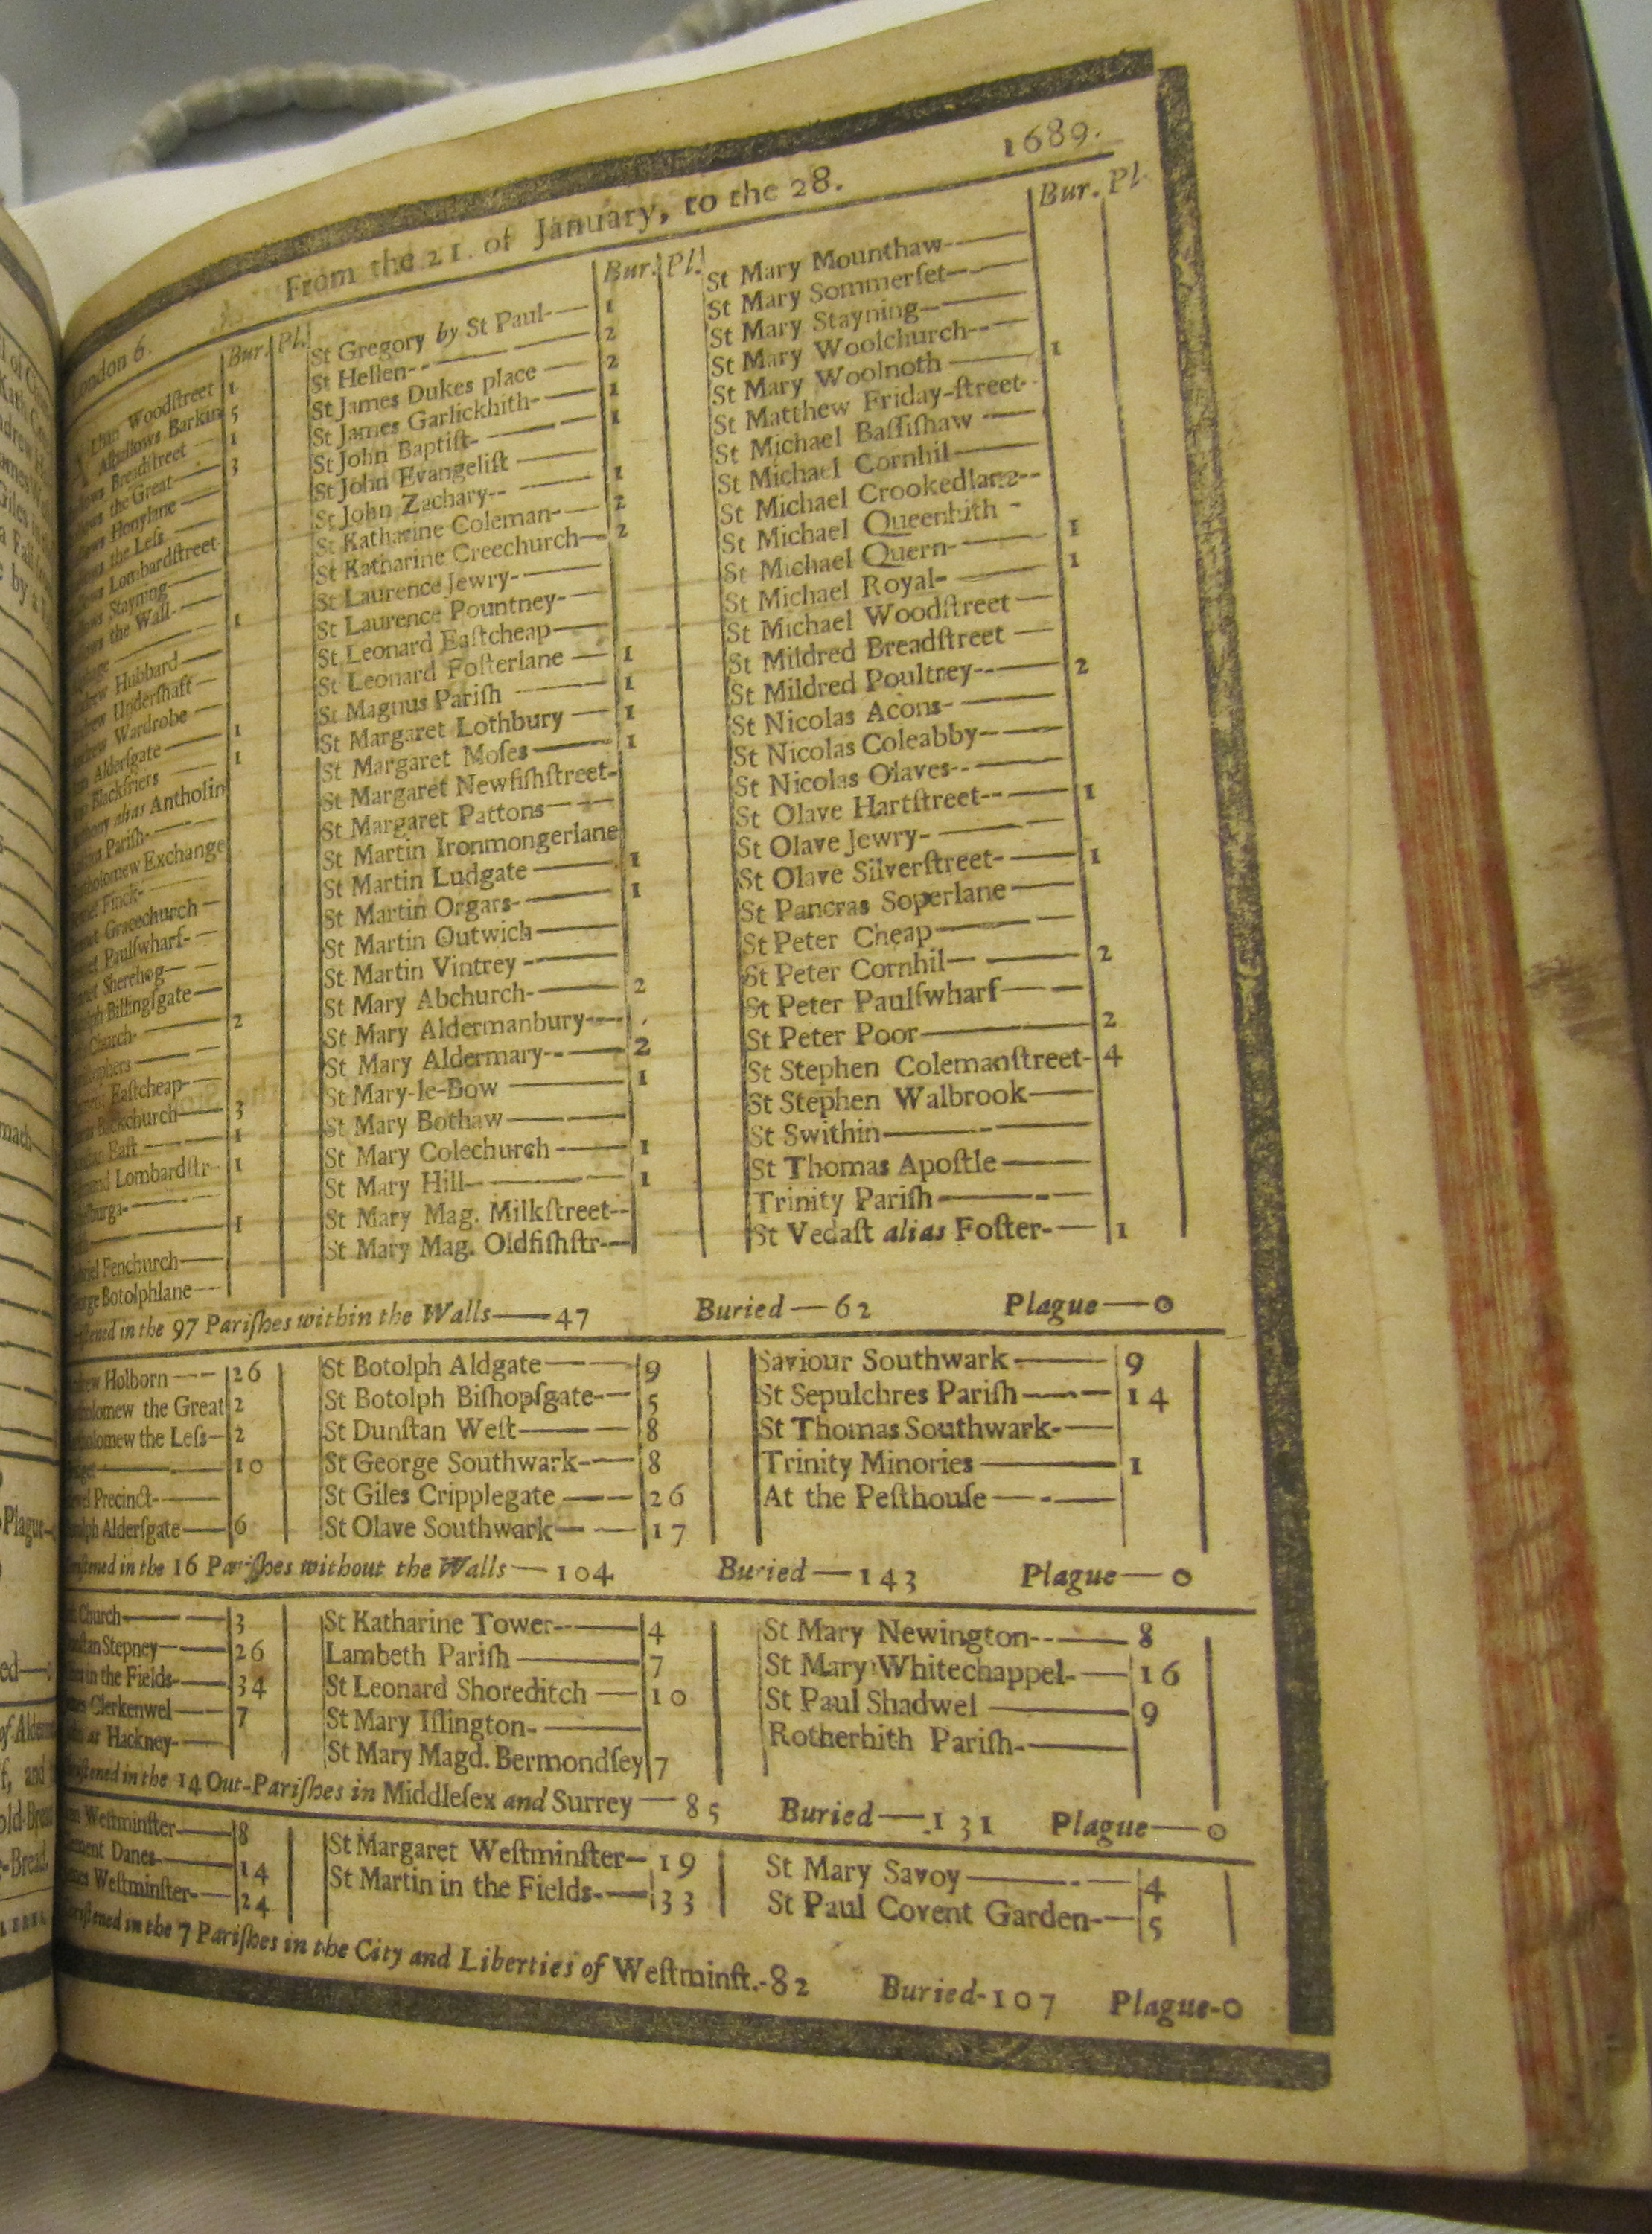 1689.
London 6. From the 21. of January, to the 28.
Bur. Pl.
Woodſtreet 1
Alhallows Barkin 5
Breadſtreet 1
the Great 3
Honylane
the Leſs
Lombardſtreet
Stayning
the Wall
1
Hubbard
Underſhaft
Wardrobe
Alderſgate 1
Blackfriers 1
alias Antholin
Pariſh
Exchange
Finck
Gracechurch
Paulſwharf
Sherehog
Billingſgate
Church 2
Eaſtcheap
Backchurch 3
Eaſt 1
Lombardſtr 1
1
Fenchurch
Botolphlane
Bur. Pl.
St Gregory by St Paul 1
St Hellen 2
St James Dukes place 2
St James Garlickhith 1
St John Baptiſt 1
St John Evangeliſt
St John Zachary 1
St Katharine Coleman 2
St Katharine Creechurch 2
St Laurence Jewry
St Laurence Pountney
St Leonard Eaſtcheap
St Leonard Foſterlane 1
St Magnus Pariſh 1
St Margaret Lothbury 1
St Margaret Moſes 1
St Margaret Newfiſhſtreet
St Margaret Pattons
St Martin Ironmongerlane
St Martin Ludgate 1
St Martin Orgars 1
St Martin Outwich
St Martin Vintrey
St Mary Abchurch 2
St Mary Aldermanbury
St Mary Aldermary 2
St Mary-le-Bow 1
St Mary Bothaw
St Mary Colechurch 1
St Mary Hill 1
St Mary Mag. Milkſtreet
St Mary Mag. Oldfiſhſtr
Bur. Pl.
St Mary Mounthaw
St Mary Sommerſet
St Mary Stayning
St Mary Woolchurch
St Mary Woolnoth 1
St Matthew Friday-ſtreet
St Michael Baſſiſhaw
St Michael Cornhil
St Michael Crookedlane
St Michael Queenhith
St Michael Quern 1
St Michael Royal 1
St Michael Woodſtreet
St Mildred Breadſtreet
St Mildred Poultrey 2
St Nicolas Acons
St Nicolas Coleabby
St Nicolas Olaves
St Olave Hartſtreet 1
St Olave Jewry
St Olave Silverſtreet 1
St Pancras Soperlane
St Peter Cheap
St Peter Cornhil 2
St Peter Paulſwharf
St Peter Poor 2
St Stephen Colemanſtreet 4
St Stephen Walbrook
St Swithin
St Thomas Apoſtle
Trinity Pariſh
St Vedaſt alias Foſter 1
in the 97 Pariſhes within the Walls—47 Buried—62 Plague—0
Holborn 26
the Great 2
the Leſs 2
10
Precinct
Alderſgate 6
St Botolph Aldgate 9
St Botolph Biſhopſgate 5
St Dunſtan Weſt 8
St George Southwark 8
St Giles Cripplegate 26
St Olave Southwark 17
Saviour Southwark 9
St Sepulchres Pariſh 14
St Thomas Southwark
Trinity Minories 1
At the Peſthouſe
in the 16 Pariſhes without the Walls—104 Buried—143 Plague—0
Church 3
Stepney 26
in the Fields 34
Clerkenwel 7
at Hackney
St Katharine Tower 4
Lambeth Pariſh 7
St Leonard Shoreditch 10
St Mary Iſlington
St Mary Magd. Bermondſey 7
St Mary Newington 8
St Mary Whitechappel 16
St Paul Shadwel 9
Rotherhith Pariſh
in the 14 Out-Pariſhes in Middleſex and Surrey—85 Buried—131 Plague—0
Weſtminſter 8
Danes 14
Weſtminſter 24
St Margaret Weſtminſter 19
St Martin in the Fields 33
St Mary Savoy 4
St Paul Covent Garden 5
in the 7 Pariſhes in the City and Liberties of Weſtminſt.-82 Buried-107 Plague-0